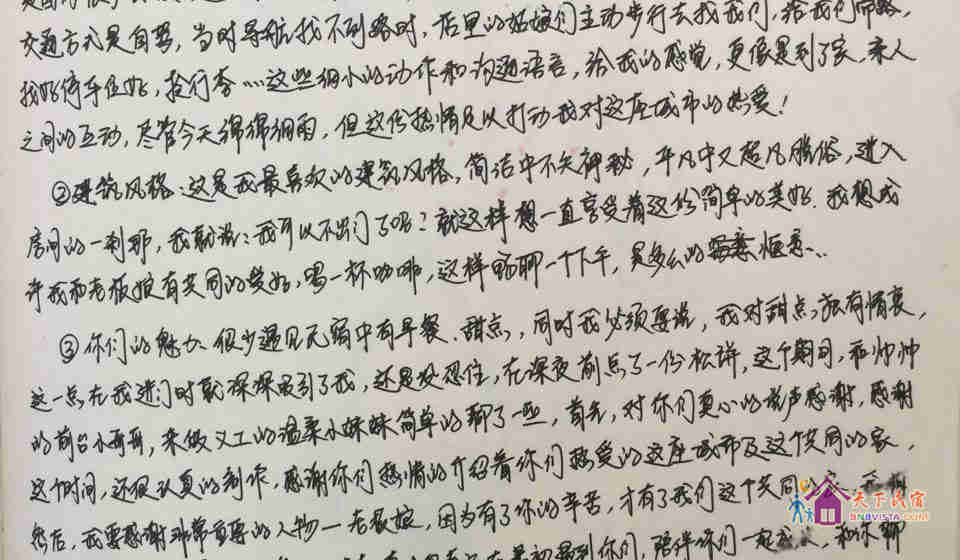 交通方式是自驾，当时导航找不到路时，店里的姑娘们主动步行去找我们，给我们带路，
找好停车位好，拉行李…这些细小的动作和沟通语言，给我的感觉，更像是到了家，亲人
之间的互动，尽管今天绵绵细雨，但这份热情足以打动我对这座城市的热爱！
②建筑风格：这是我最喜欢的建筑风格，简洁中不失神秘，平凡中又超凡脱俗，进入
房间的一刹那，我就说：我可以不出门了吗？就这样想一直享受着这份简单的美好。我想或
许我和老板娘有共同的爱好，喝一杯咖啡，这样畅聊一个下午，是多么的惬意…
③你们的魅力、很少遇见民宿中有早餐、甜点，同时我必须要说，我对甜点独有情衷，
这一点在我进门时就深深吸引了我，还是没忍住，在深夜前点了一份松饼，这个期间，和帅帅
的前台小哥哥，来做义工的温柔小妹妹简单的聊了一些，首先，对你们真心的说声感谢，感谢
这个时间，还很认真的制作，感谢你们热情的介绍着你们热爱的这座城市及这个共同的家，
然后，我要感谢非常重要的人物—老板娘，因为有了你的辛苦，才有了我们这个共同
到你们，陪伴你们一起 和你聊
天下民宿
BNBVISTA.COM